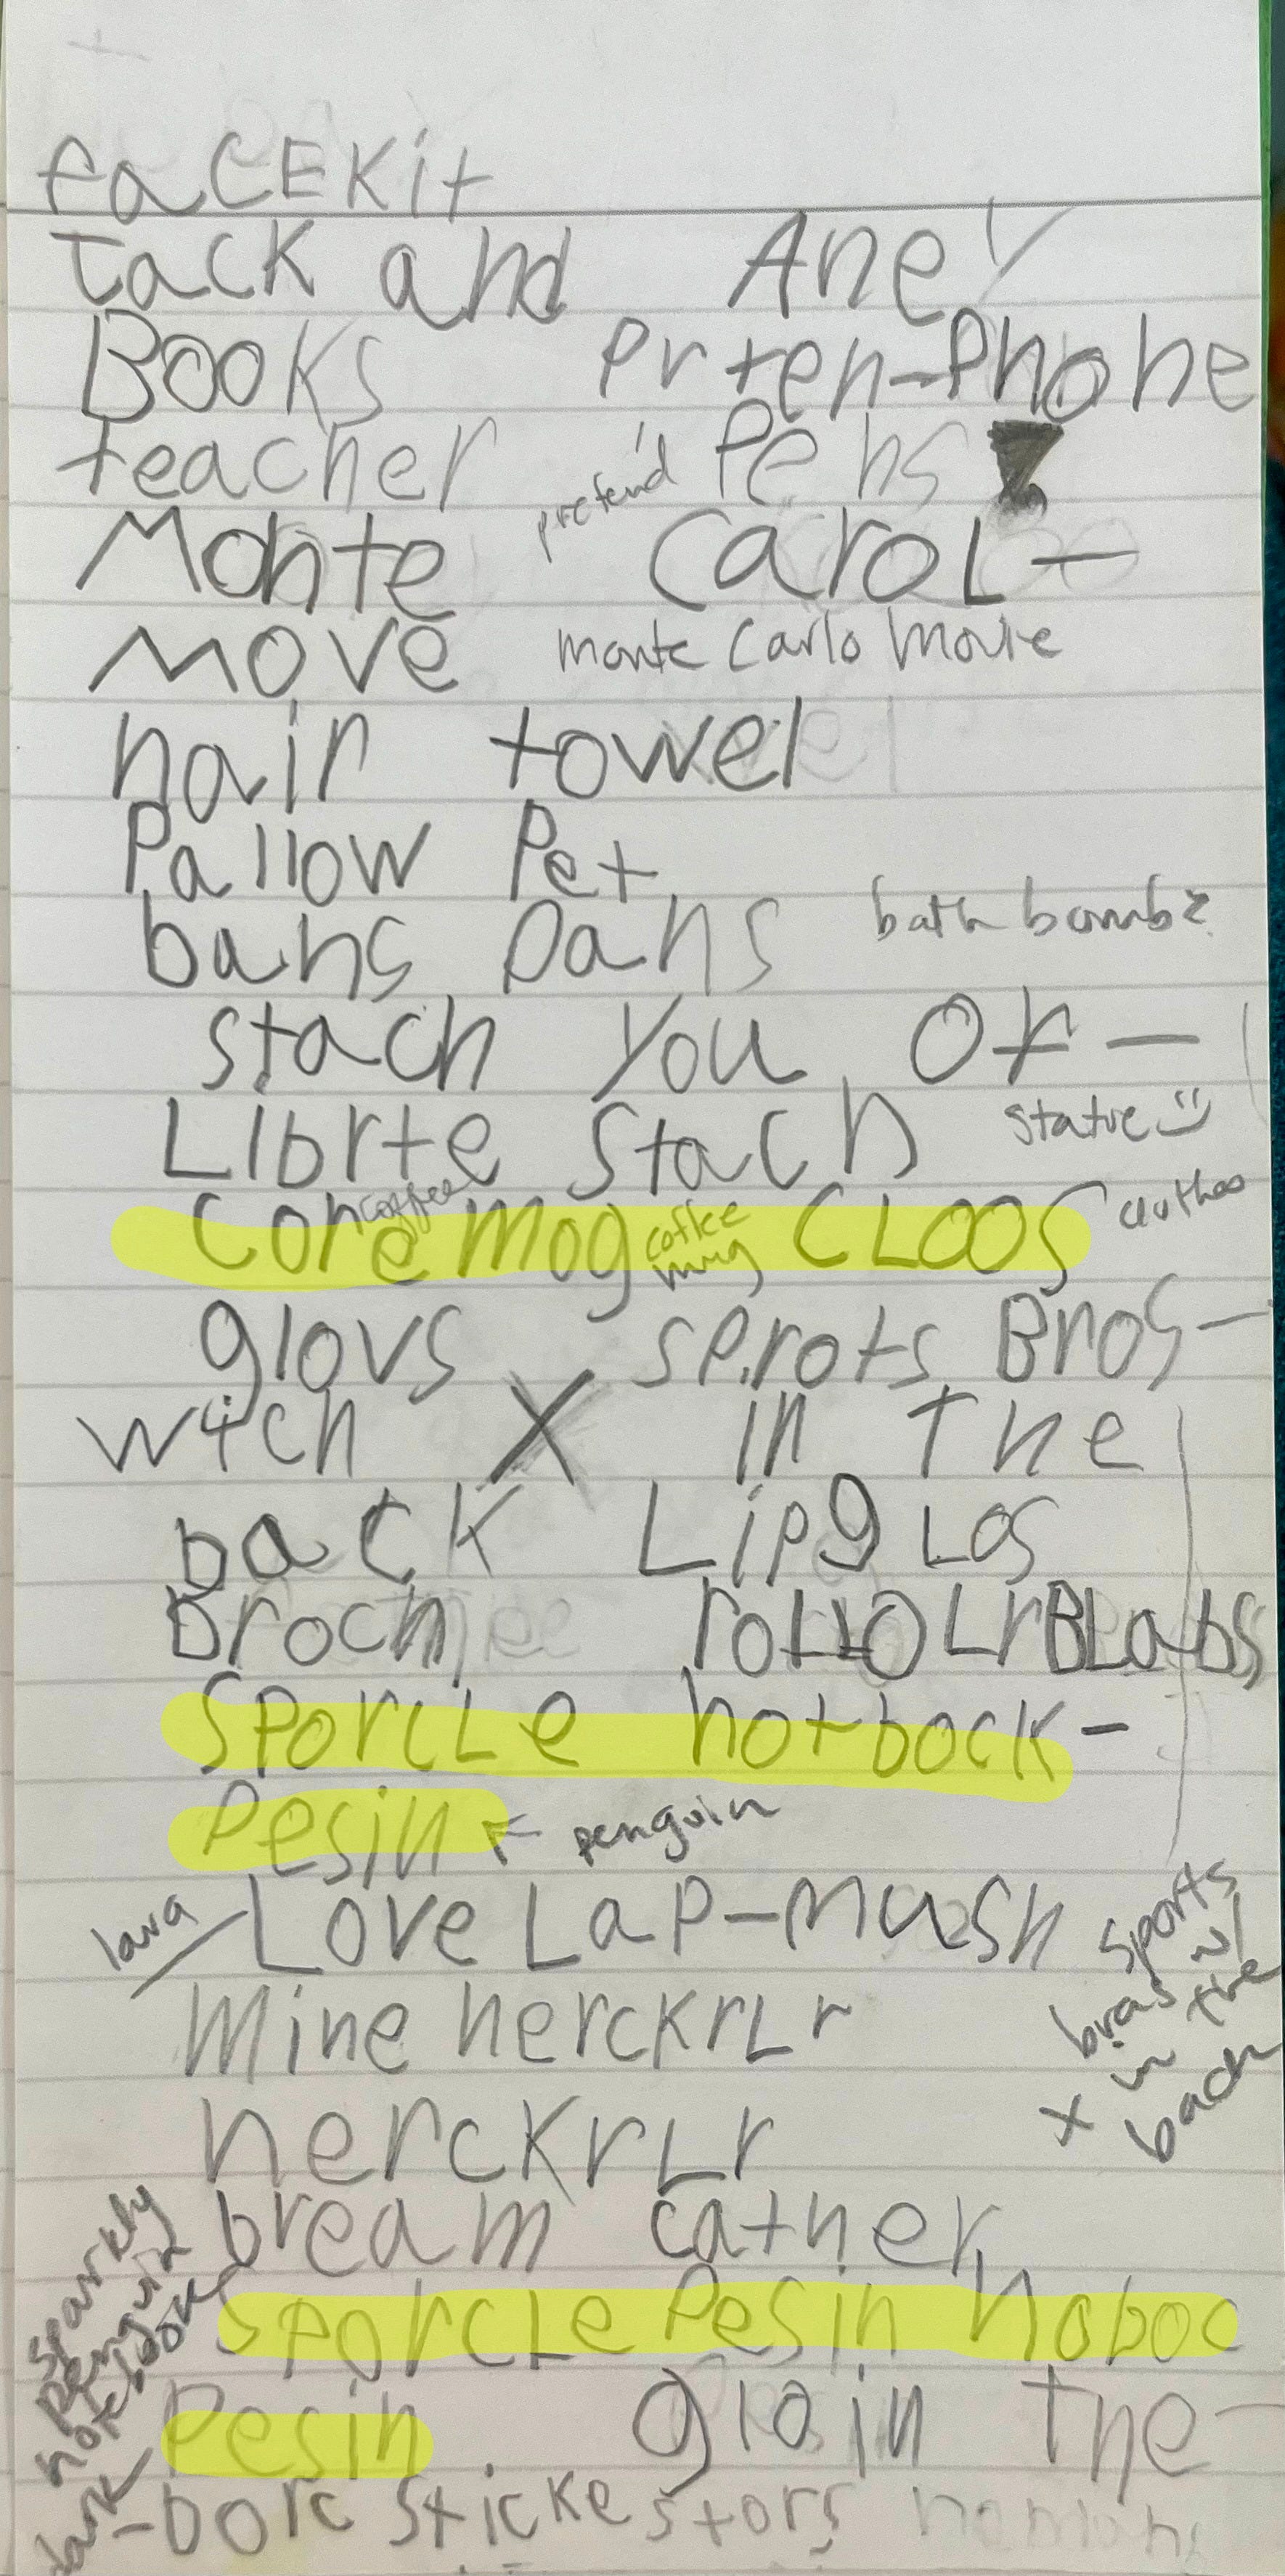 faCEKit
tack and Aney
Books Prten-Phone
teacher pretend Pens
Monte CaroL-
move monte Carlo movie
hair towel
Pallow Pet
bahs Dans bath bombs
stach You OF-
Librte Stach statue
Cohe coffee mog coffee mug CLOOS clothes
glovs sprots Bros-
wtch X in The
back LipgLos
Broch roLLOLrBLabs
SPorcLe hotbock-
Pesin penguin
lava LoveLaP-mush
mine herckrLr
herckrLr
sports bras w/ x in the back
bream cather
SPorcLe Pesin hoboc
Pesin gloin The-
sparkly penguin notebook
dark -Dork stickestors